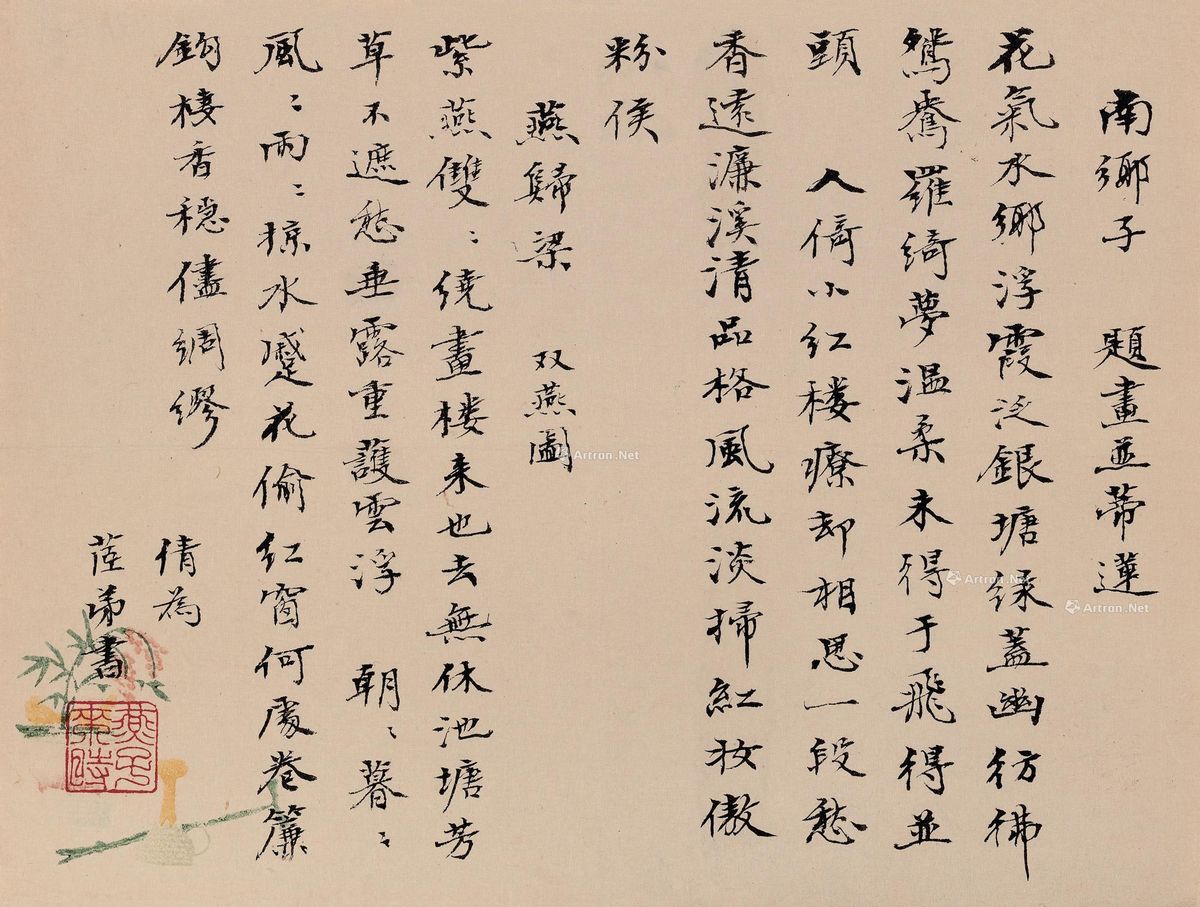 南鄉子　題畫並蒂蓮
花氣水鄉浮霞泛銀塘綠蓋幽彷彿
鴛鴦羅綺夢溫柔未得于飛得並
頭　人倚小紅楼療却相思一段愁
香遠濂溪清品格風流淡掃紅妝傲
粉侯
燕歸梁　双燕圖
紫燕雙〻繞畫楼来也去無休池塘芳
草不遮愁垂露重護雲浮　朝〻暮〻
風〻雨〻掠水蹙花偷紅窗何處卷簾
鈎棲香穩儘綢繆
倩為
書
Artron.Net
Artron.Net
Artron.Net